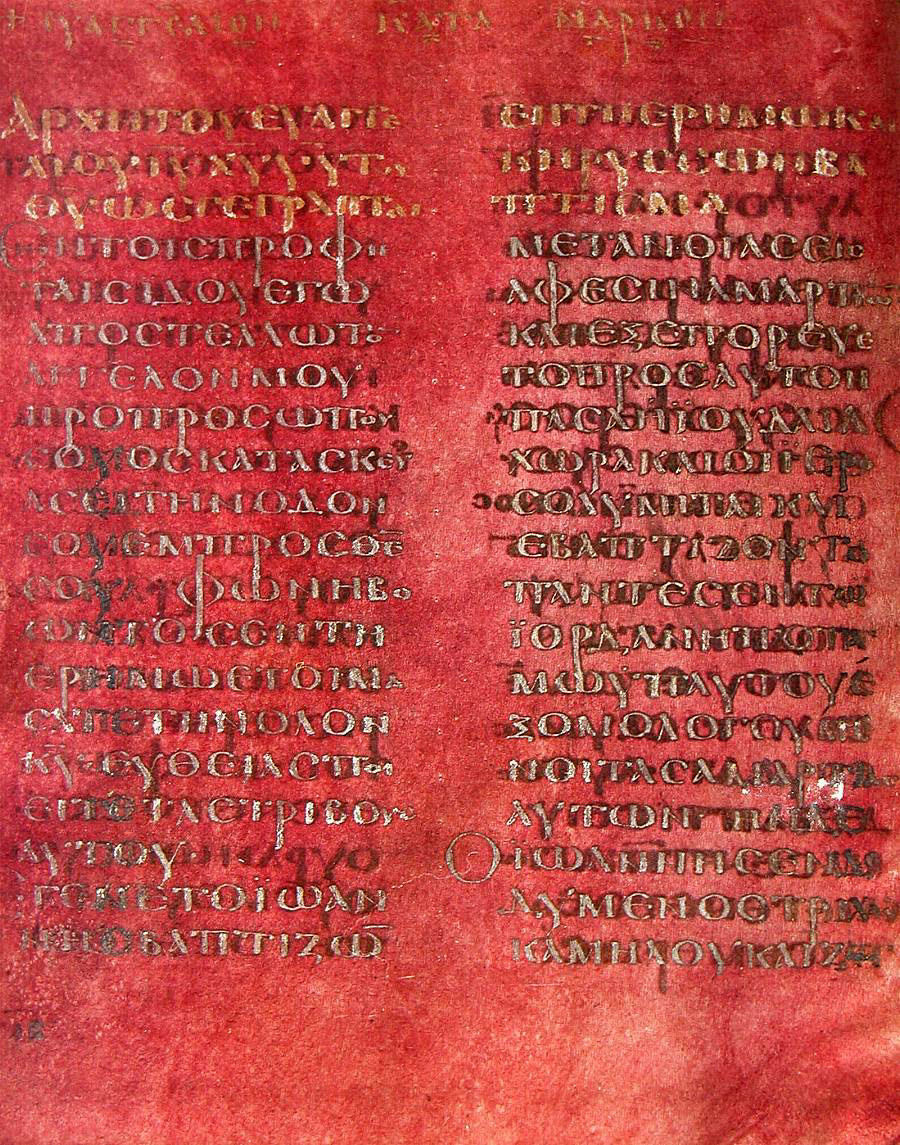 ΕΥΑΓΓΕΛΙΟΝ ΚΑΤΑ ΜΑΡΚΟΝ
ΑΡΧΗΤΟΥΕΥΑΓΓΕ
ΛΙΟΥΙ̅Υ̅Χ̅Υ̅Υ̅Υ̅ΤΟΥ
Θ̅Υ̅ΩϹΓΕΓΡΑΠΤΑΙ
ΕΝΤΟΙϹΠΡΟΦΗ
ΤΑΙϹΙΔΟΥΕΓΩ
ΑΠΟϹΤΕΛΛΩΤΟ̅
ΑΓΓΕΛΟΝΜΟΥ
ΠΡΟΠΡΟϹΩΠΟΥ
ϹΟΥΟϹΚΑΤΑϹΚΕΥ
ΑϹΕΙΤΗΝΟΔΟΝ
ϹΟΥΕΜΠΡΟϹΘΕ̅
ϹΟΥΦΩΝΗΒΟ
ΩΝΤΟϹΕΝΤΗ
ΕΡΗΜΩΕΤΟΙΜΑ
ϹΑΤΕΤΗΝΟΔΟΝ
Κ̅Υ̅ΕΥΘΕΙΑϹΠΟΙ
ΕΙΤΕΤΑϹΤΡΙΒΟΥϹ
ΑΥΤΟΥ
ΕΓΕΝΕΤΟΪΩΑΝ
ΝΗϹΒΑΠΤΙΖΩ̅
ΕΝΤΗΕΡΗΜΩΚΑΙ
ΚΗΡΥϹϹΩΝΒΑ
ΠΤΙϹΜΑ
ΜΕΤΑΝΟΙΑϹΕΙϹ
ΑΦΕϹΙΝΑΜΑΡΤΙΩ̅
ΚΑΙΕΞΕΠΟΡΕΥΕ
ΤΟΠΡΟϹΑΥΤΟΝ
ΠΑϹΑΗΪΟΥΔΑΙΑ
ΧΩΡΑΚΑΙΟΙΪΕΡΟ
ϹΟΛΥΜΙΤΑΙΚΑΙ
ΕΒΑΠΤΙΖΟΝΤΟ
ΠΑΝΤΕϹΕΝΤΩ
ΪΟΡΔΑΝΗΠΟΤΑ
ΜΩΥΠΑΥΤΟΥΕ
ΞΟΜΟΛΟΓΟΥΜΕ
ΝΟΙΤΑϹΑΜΑΡΤΙΑϹ
ΑΥΤΩΝ
ΟΙΩΑΝΝΗϹΕΝΔΕ
ΔΥΜΕΝΟϹΤΡΙΧΑϹ
ΚΑΜΗΛΟΥΚΑΙΖΩ